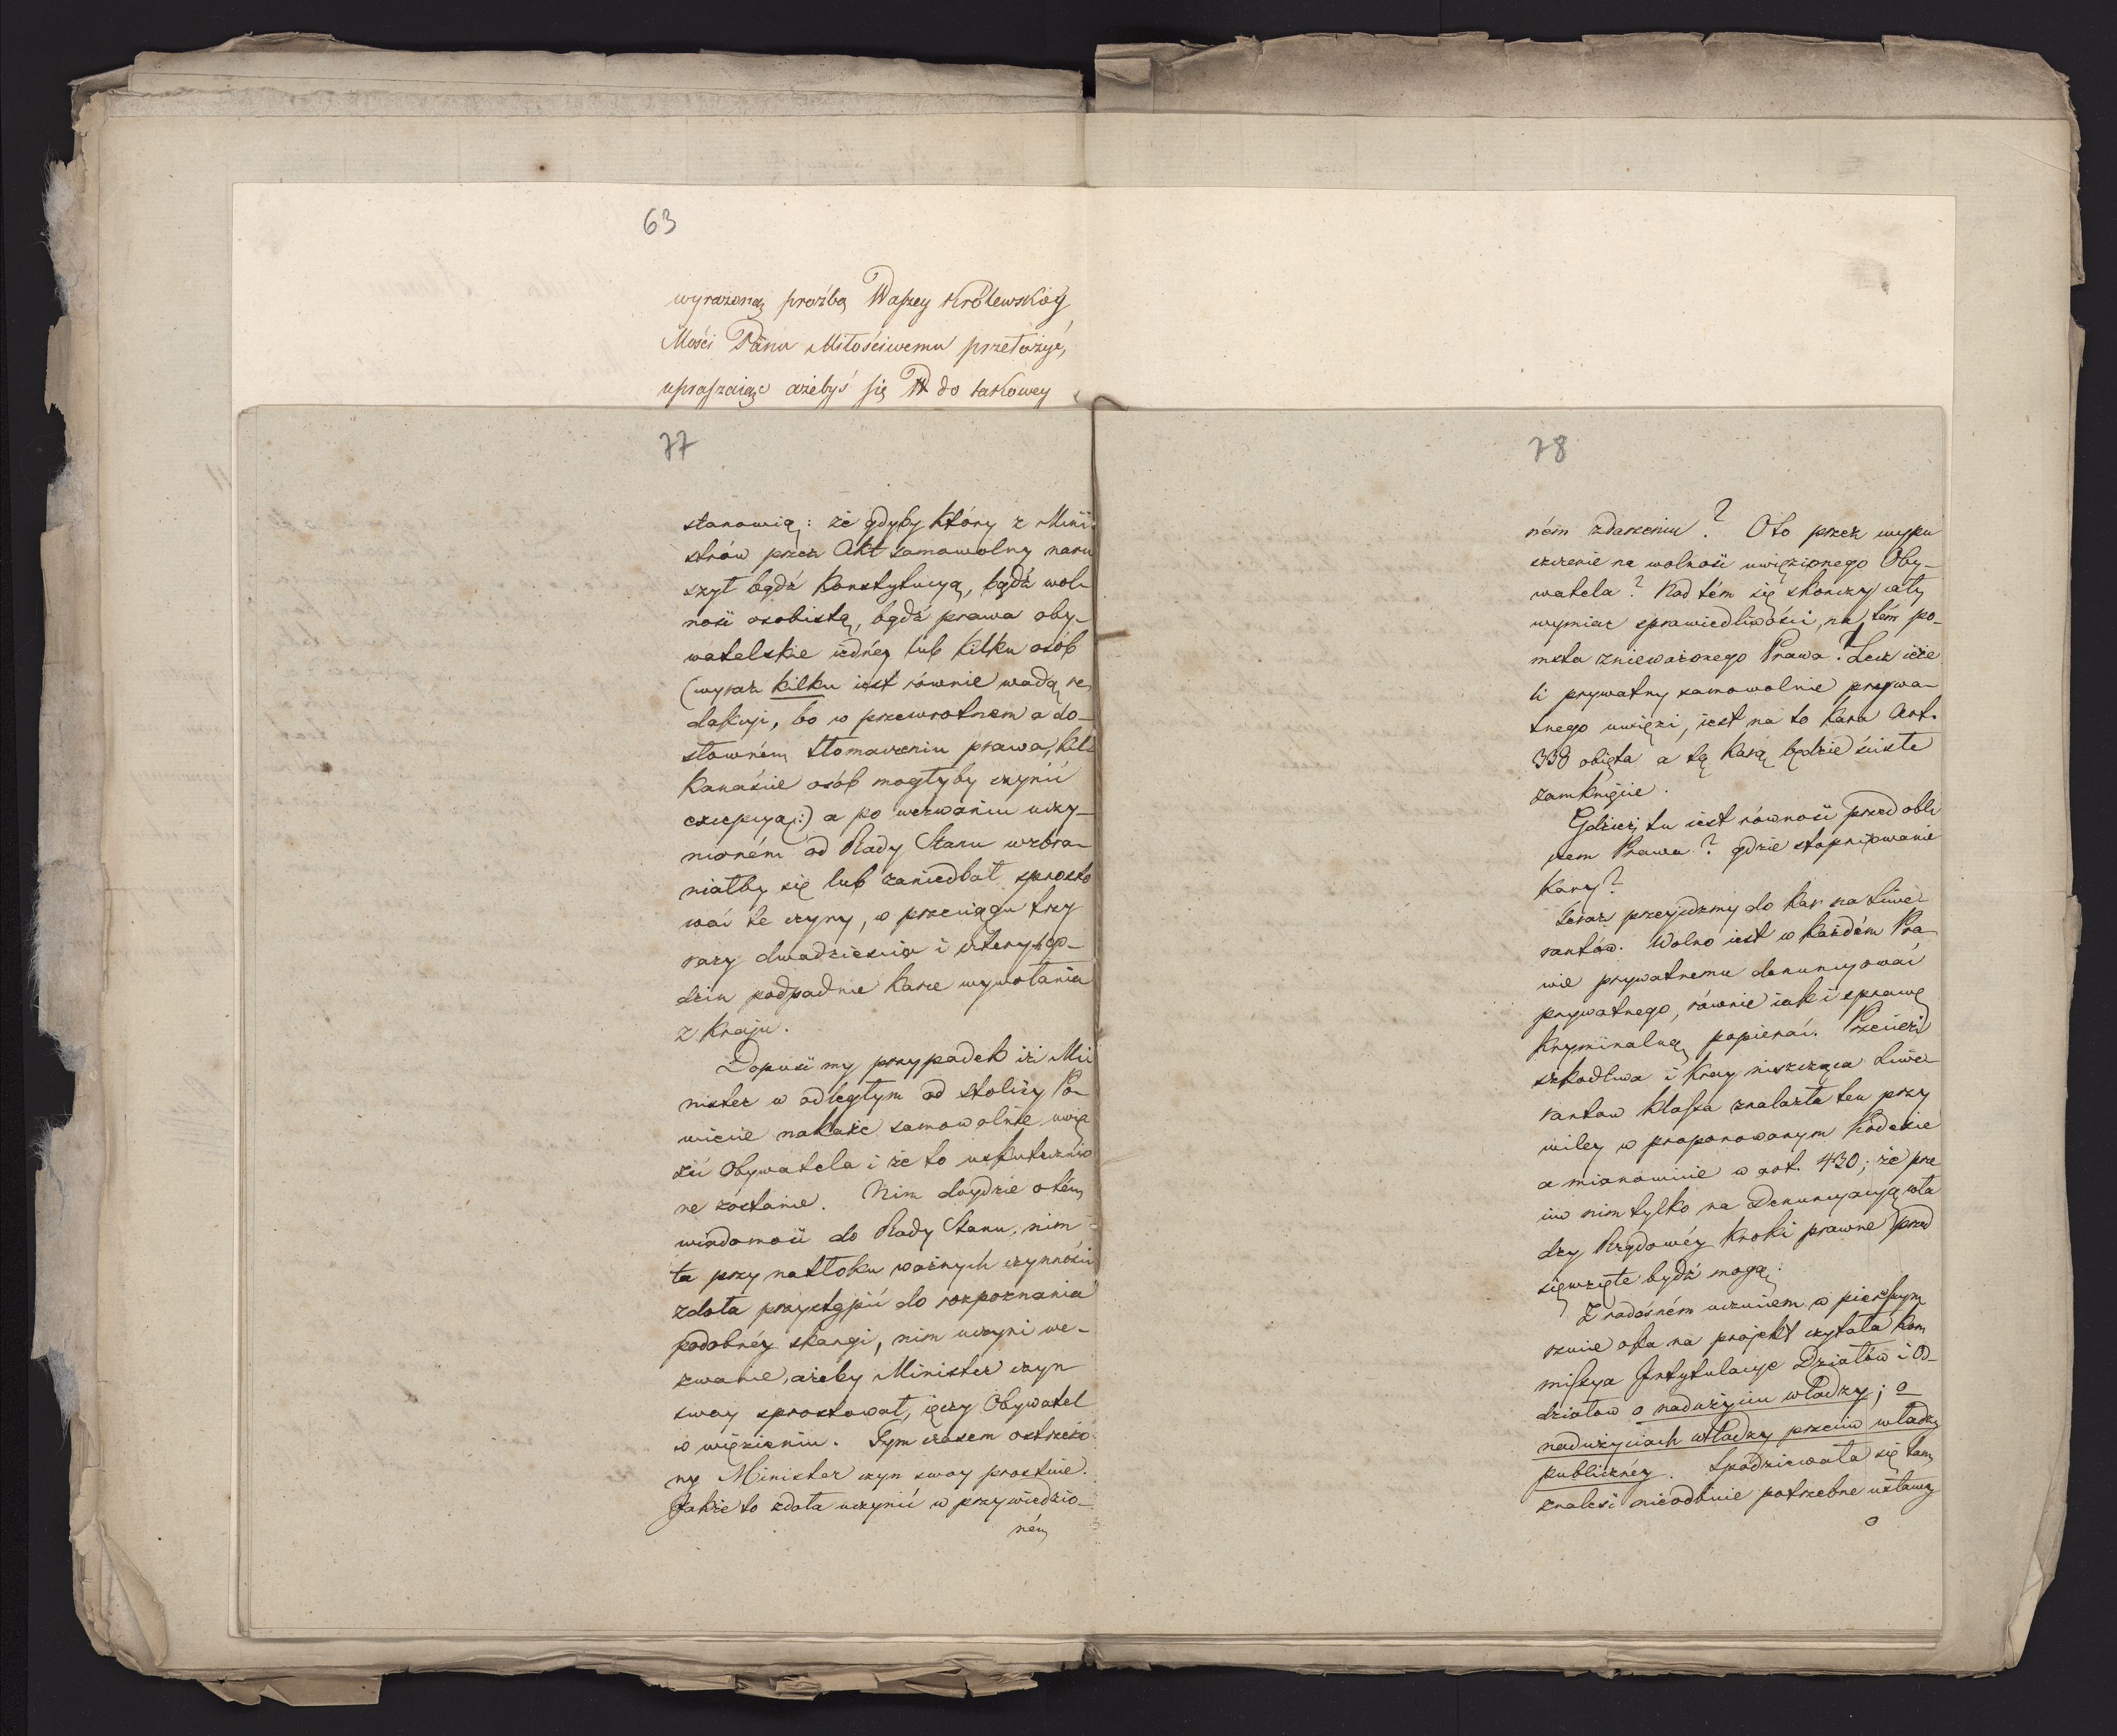 63
wyrażoną proźbą Waszey Królewskiéy
Mości Panu Miłościwemu przełożyć,
upraszaiąc ażebyś się W do takowey
77
stanowią: że gdyby który z Mini
strów przez Akt samowolny naru
szył bądź Konstytucyą, bądź wol-
ność osobistą, bądź prawa oby-
watelskie iednéy lub kilku osób
(wyraz kilku iest równie wadą re
dakcyi, bo w przewrotnem a do-
słowném tłomaczeniu prawa, kil
kanaście osób mogłyby czynić
excepcyą:) a po wezwaniu uczy-
nioném od Rady Stanu wzbra-
niałby się lub zaniedbał sprosto
wać te czyny, w przeciągu trzy
razy dwadzieścia i cztery go-
dzin podpadnie karze wywołania
z kraju.
Dopuść my przypadek iż Mi
nister w odległym od stolicy Po-
wiecie nakaże samowolnie uwię
zić Obywatela i że to uskuteczнio
ne zostanie. Nim doydzie o tém
wiadomość do Rady Stanu, nim
ta przy natłoku ważnych czynności
zdoła przystąpić do rozpoznania
podobnéy skargi, nim uczyni we-
zwanie, ażeby Minister czyn
swoy sprostował, ięczy Obywatel
w więzieniu. Tym czasem ostrzeżo
ny Minister czyn swoy prostuie.
Jakże to zdoła uczynić w przywiedzio-
ném
78
ném zdarzeniu? Oto przez wypu
szczenie na wolność uwięzionego Oby-
watela? Nad tém się skończy cały
wymiar sprawiedliwości, na tém po-
msta znieważonego Prawa? Lecz ieże
li prywatny samowolnie prywa-
tnego uwięzi, iest na to kara Art.
338 obięta a tą karą będzie ścisłe
zamknięcie.
Gdzież tu iest równość przed obli
czem Prawa? gdzie stopniowanie
kary?
Teraz przeydzmy do kar na Liwe-
rantów. Wolno iest w każdém Pra
wie prywatnemu denuncyować
prywatnego, równie iak i sprawę
kryminalną popierać. Przecież
szkodliwa i Kray niszcząca Liwe-
rantow klassa znalazła ten przy
wiley w proponowanym Kodexie
a mianowicie w art. 430; że prze
ciw nim tylko na Denuncyacyą wła
dzy Rządowéy kroki prawne przed
sięwzięte bydź mogą.
Z radosném uczuciem w pierwszym
rzucie oka na projekt czytała Kom
missya Intytulacye Działów i Od-
działow o nadużyciu władzy; o
nadużyciach władzy przeciw władzy
publicznéy. Spodziewała się tam
znaleść nieodbicie potrzebne ustawy
o